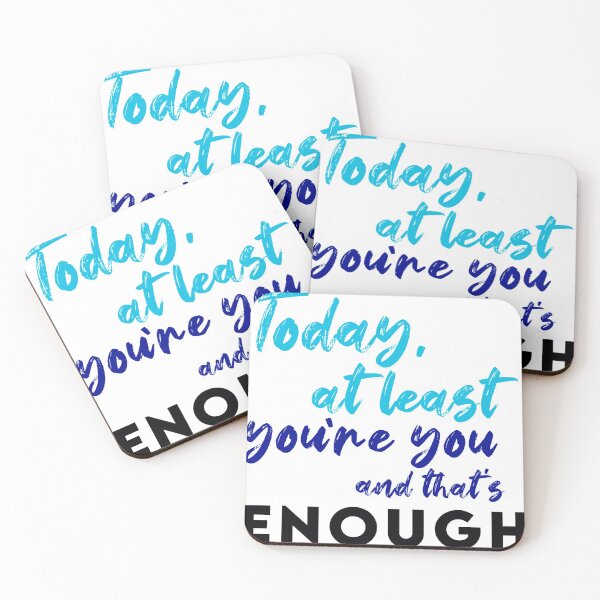 Today,
at least
Today,
at least
you're you
Today,
at least
you're you
and
Today,
at least
you're you
and that's
ENOUGH